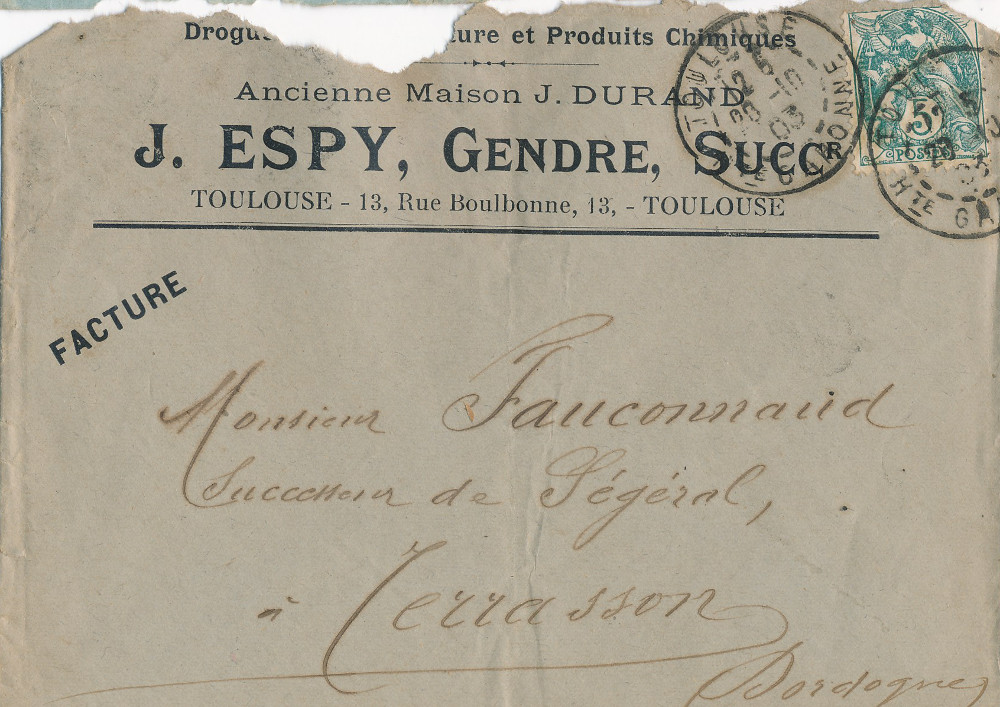 Drogu ture et Produits Chimiques
Ancienne Maison J. DURAND
J. ESPY, GENDRE, SUCCR
TOULOUSE - 13, Rue Boulbonne, 13, - TOULOUSE
FACTURE
Monsieur Fauconnaud
Successeur de Ségéral,
à Terrasson
Dordogne
5
POSTES
TOULOUSE
Hte GARONNE